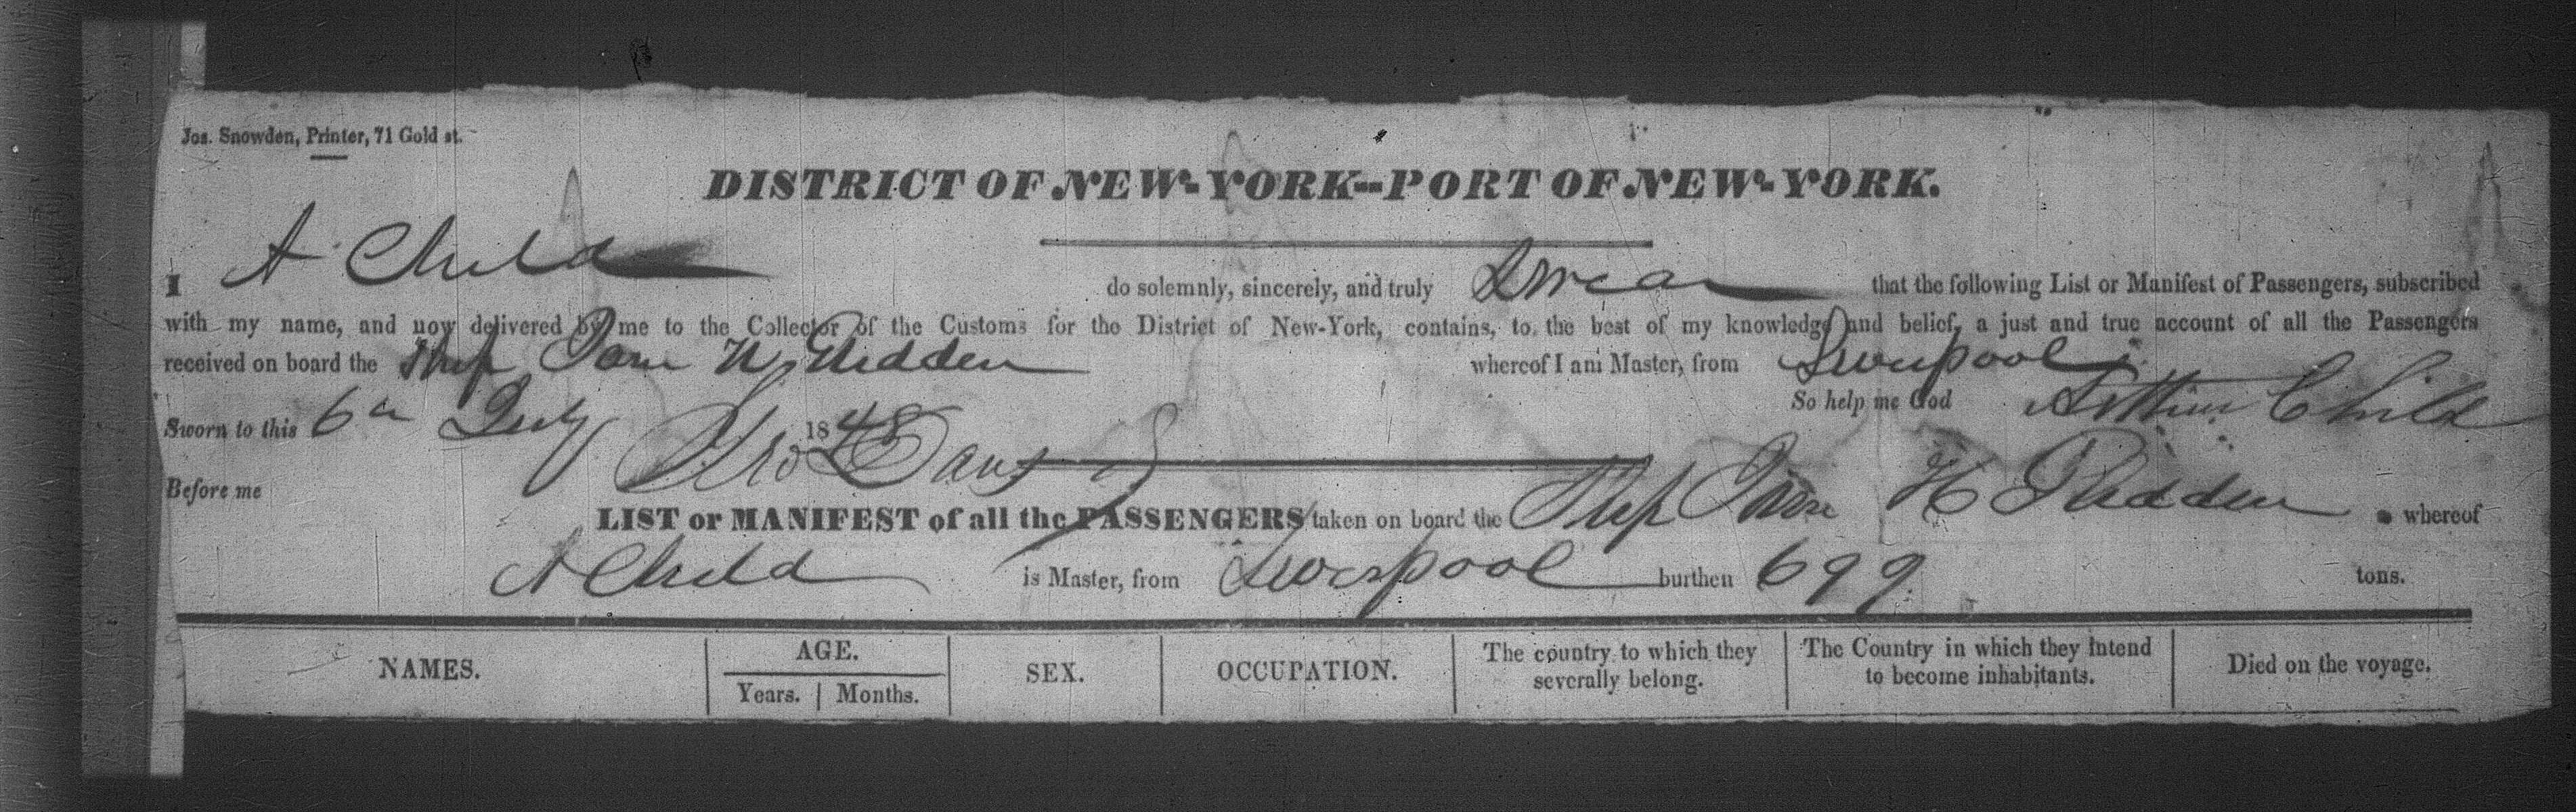 Jos. Snowden, Printer, 71 Gold st.
DISTRICT OF NEW-YORK--PORT OF NEW-YORK.
I A Child do solemnly, sincerely, and truly Swear that the following List or Manifest of Passengers, subscribed
with my name, and now delivered by me to the Collector of the Customs for the District of New-York, contains, to the best of my knowledge and belief, a just and true account of all the Passengers
received on board the Ship Jane H Glidden whereof I am Master, from Liverpool
So help me God Arthur Child
Sworn to this 6th July 1848
Before me Davis
LIST or MANIFEST of all the PASSENGERS taken on board the Ship Jane H Glidden whereof
A Child is Master, from Liverpool burthen 699 tons.
NAMES. AGE. Years. Months. SEX. OCCUPATION. The country to which they severally belong. The Country in which they intend to become inhabitants. Died on the voyage.